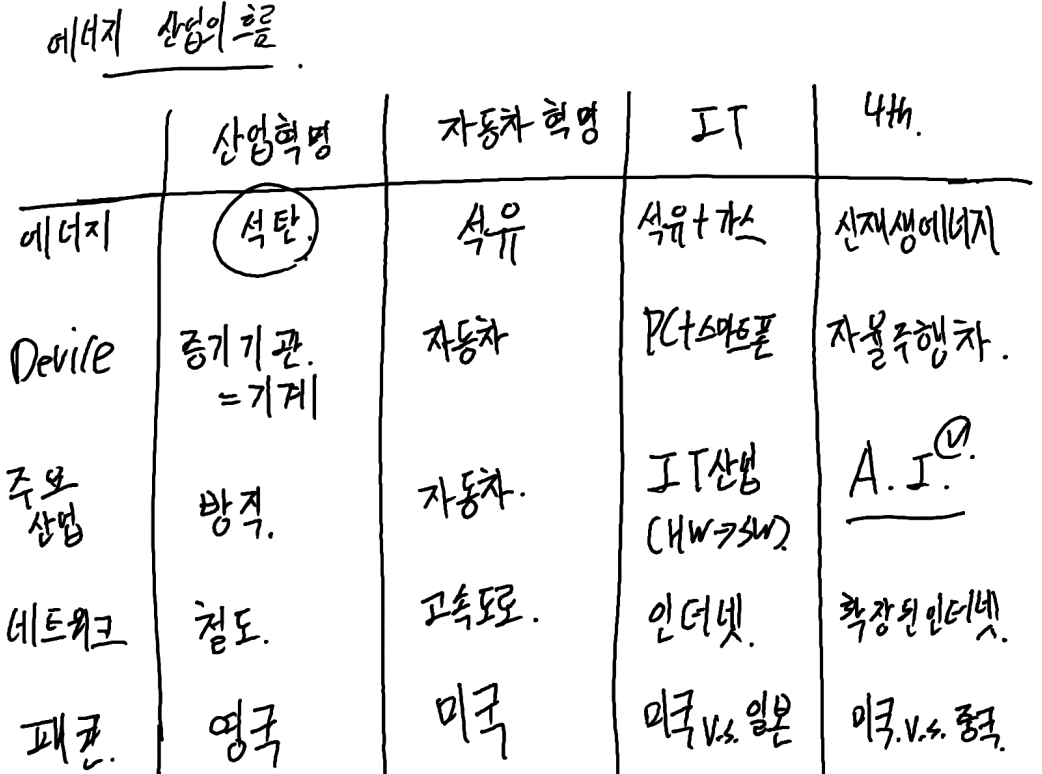 에너지 산업의 흐름.
산업혁명 자동차 혁명 IT 4th.
에너지 석탄. 석유 석유+가스 신재생에너지
Device 증기기관. 자동차 PC+스마트폰 자율주행차.
=기계
주요 방직. 자동차. IT산업 A.I.
산업 (HW→SW).
네트워크 철도. 고속도로. 인터넷. 확장된인터넷.
패권. 영국 미국 미국 v.s. 일본 미국. v.s. 중국.